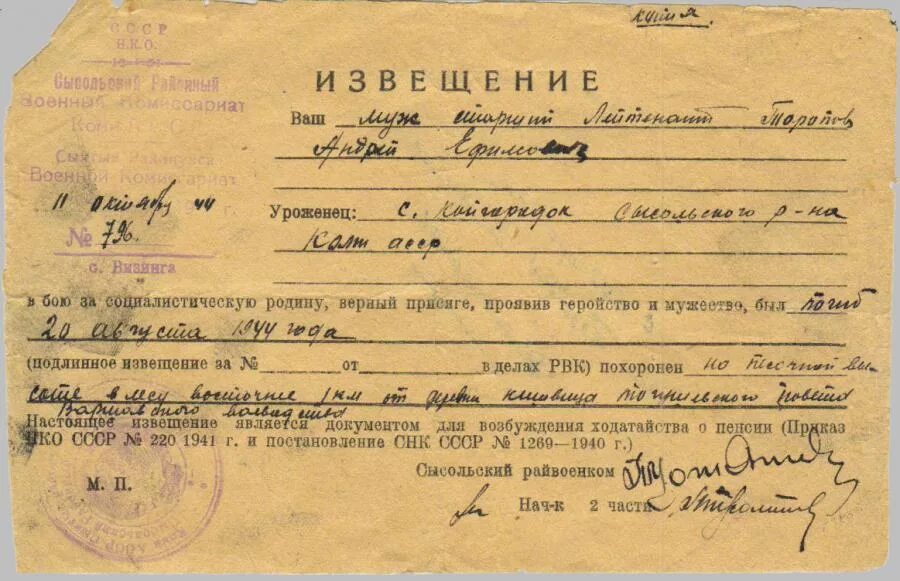 копия.
СССР
Н.К.О.
Сысольский Районный
Военный Комиссариат
Коми
Военной Комиссариат
11 октября 44 г.
№ 796.
с. Визинга
ИЗВЕЩЕНИЕ
Ваш муж старший Лейтенант Торопов
Андрей Ефимович
Уроженец: с. Койгородок Сысольского р-на
Коми асср
в бою за социалистическую родину, верный присяге, проявив геройство и мужество, был погиб
20 августа 1944 года
(подлинное извещение за № от в делах РВК) похоронен на песчаной вы-
соте в лесу восточнее 1 км от
Варшавского воеводства
Настоящее извещение является документом для возбуждения ходатайства о пенсии (Приказ
НКО СССР № 220 1941 г. и постановление СНК СССР № 1269—1940 г.)
Сысольский райвоенком
М. П.
Нач-к 2 части